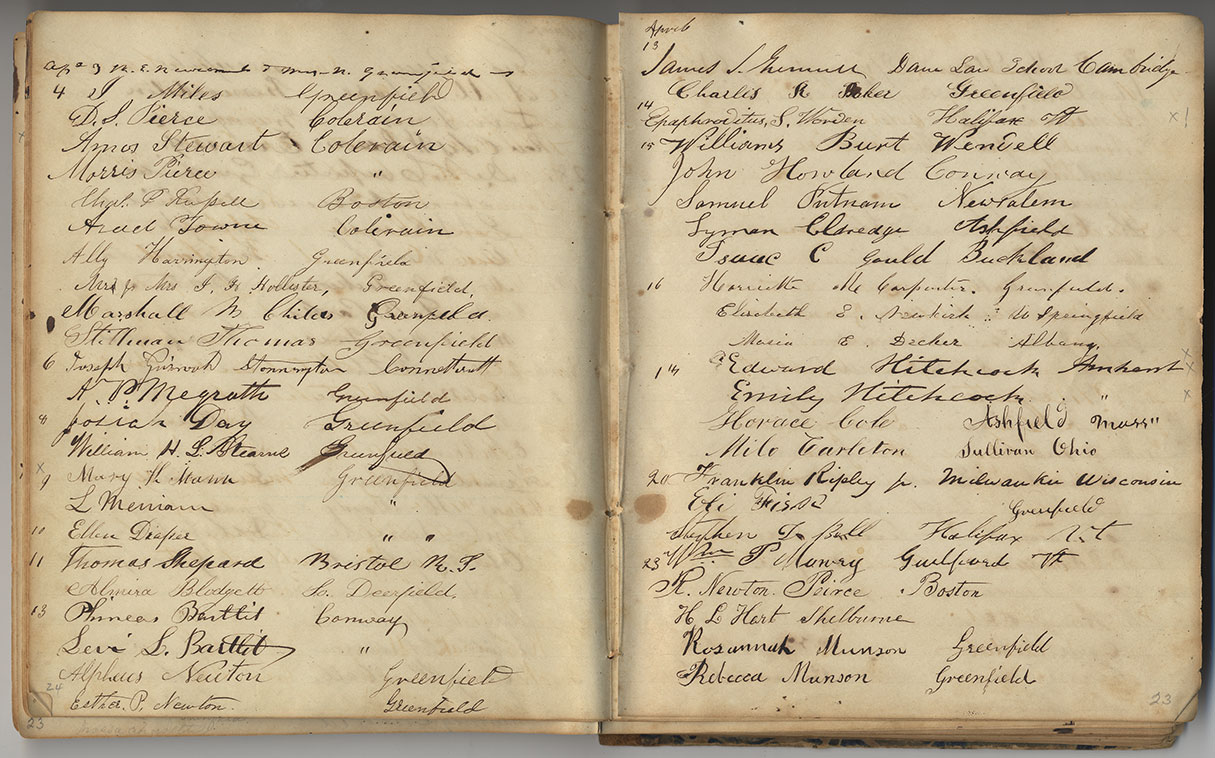 3 N. E. & Mrs. N. Greenfield
4 J Miles Greenfield
D. S. Pierce Colerain
Amos Stewart Colerain
Morris Pierce "
Chas. P. Boston
Arad Towne Colerain
Ally Harrington. Greenfield
Mr & Mrs J. H. Hollister, Greenfield,
Marshall M Childs Greenfield.
Stillman Thomas Greenfield
6 Joseph Stonnington
A. P. Megrath Greenfield
8 Josiah Day Greenfield
William H. L. Stearns Greenfield
x
9 Mary H. Mann Greenfield
L Merriam "
10 Ellen Draper " "
11 Thomas Shepard Bristol R. I.
Almira Blodgett So. Deerfield,
13 Phineas Bartlit Conway
Levi L. Bartlit "
Alpheus Newton Greenfield
24
Esther. P. Newton. Greenfield
23
April
13
James S. Dane Law School Cambridge
Charles R Greenfield
14
Epaphroditus. S. Worden Halifax Vt x 1
15 Williams Burt Wendell
John Howland Conway
Samuel Putnam New Salem
Lyman Eldredge Ashfield
Isaac C Gould Buckland
16 Harriette M. Carpenter. Greenfield.
Elisabeth E. Newkirk W Springfield
Maria E. Decker Albany.
x
Edward Hitchcock Amherst
x
Emily Hitchcock. "
Horace Cole Ashfield Mass"
Milo Carleton Sullivan Ohio
20 Franklin Ripley jr. Milwaukie Wisconsin
Eli Fisk Greenfield
Stephen Halifax Vt
23 Wm P Mowry Guilford Vt
H. Newton Peirce Boston
H L Hart Shelburne
Rosannah Munson Greenfield
Rebecca Munson Greenfield
23